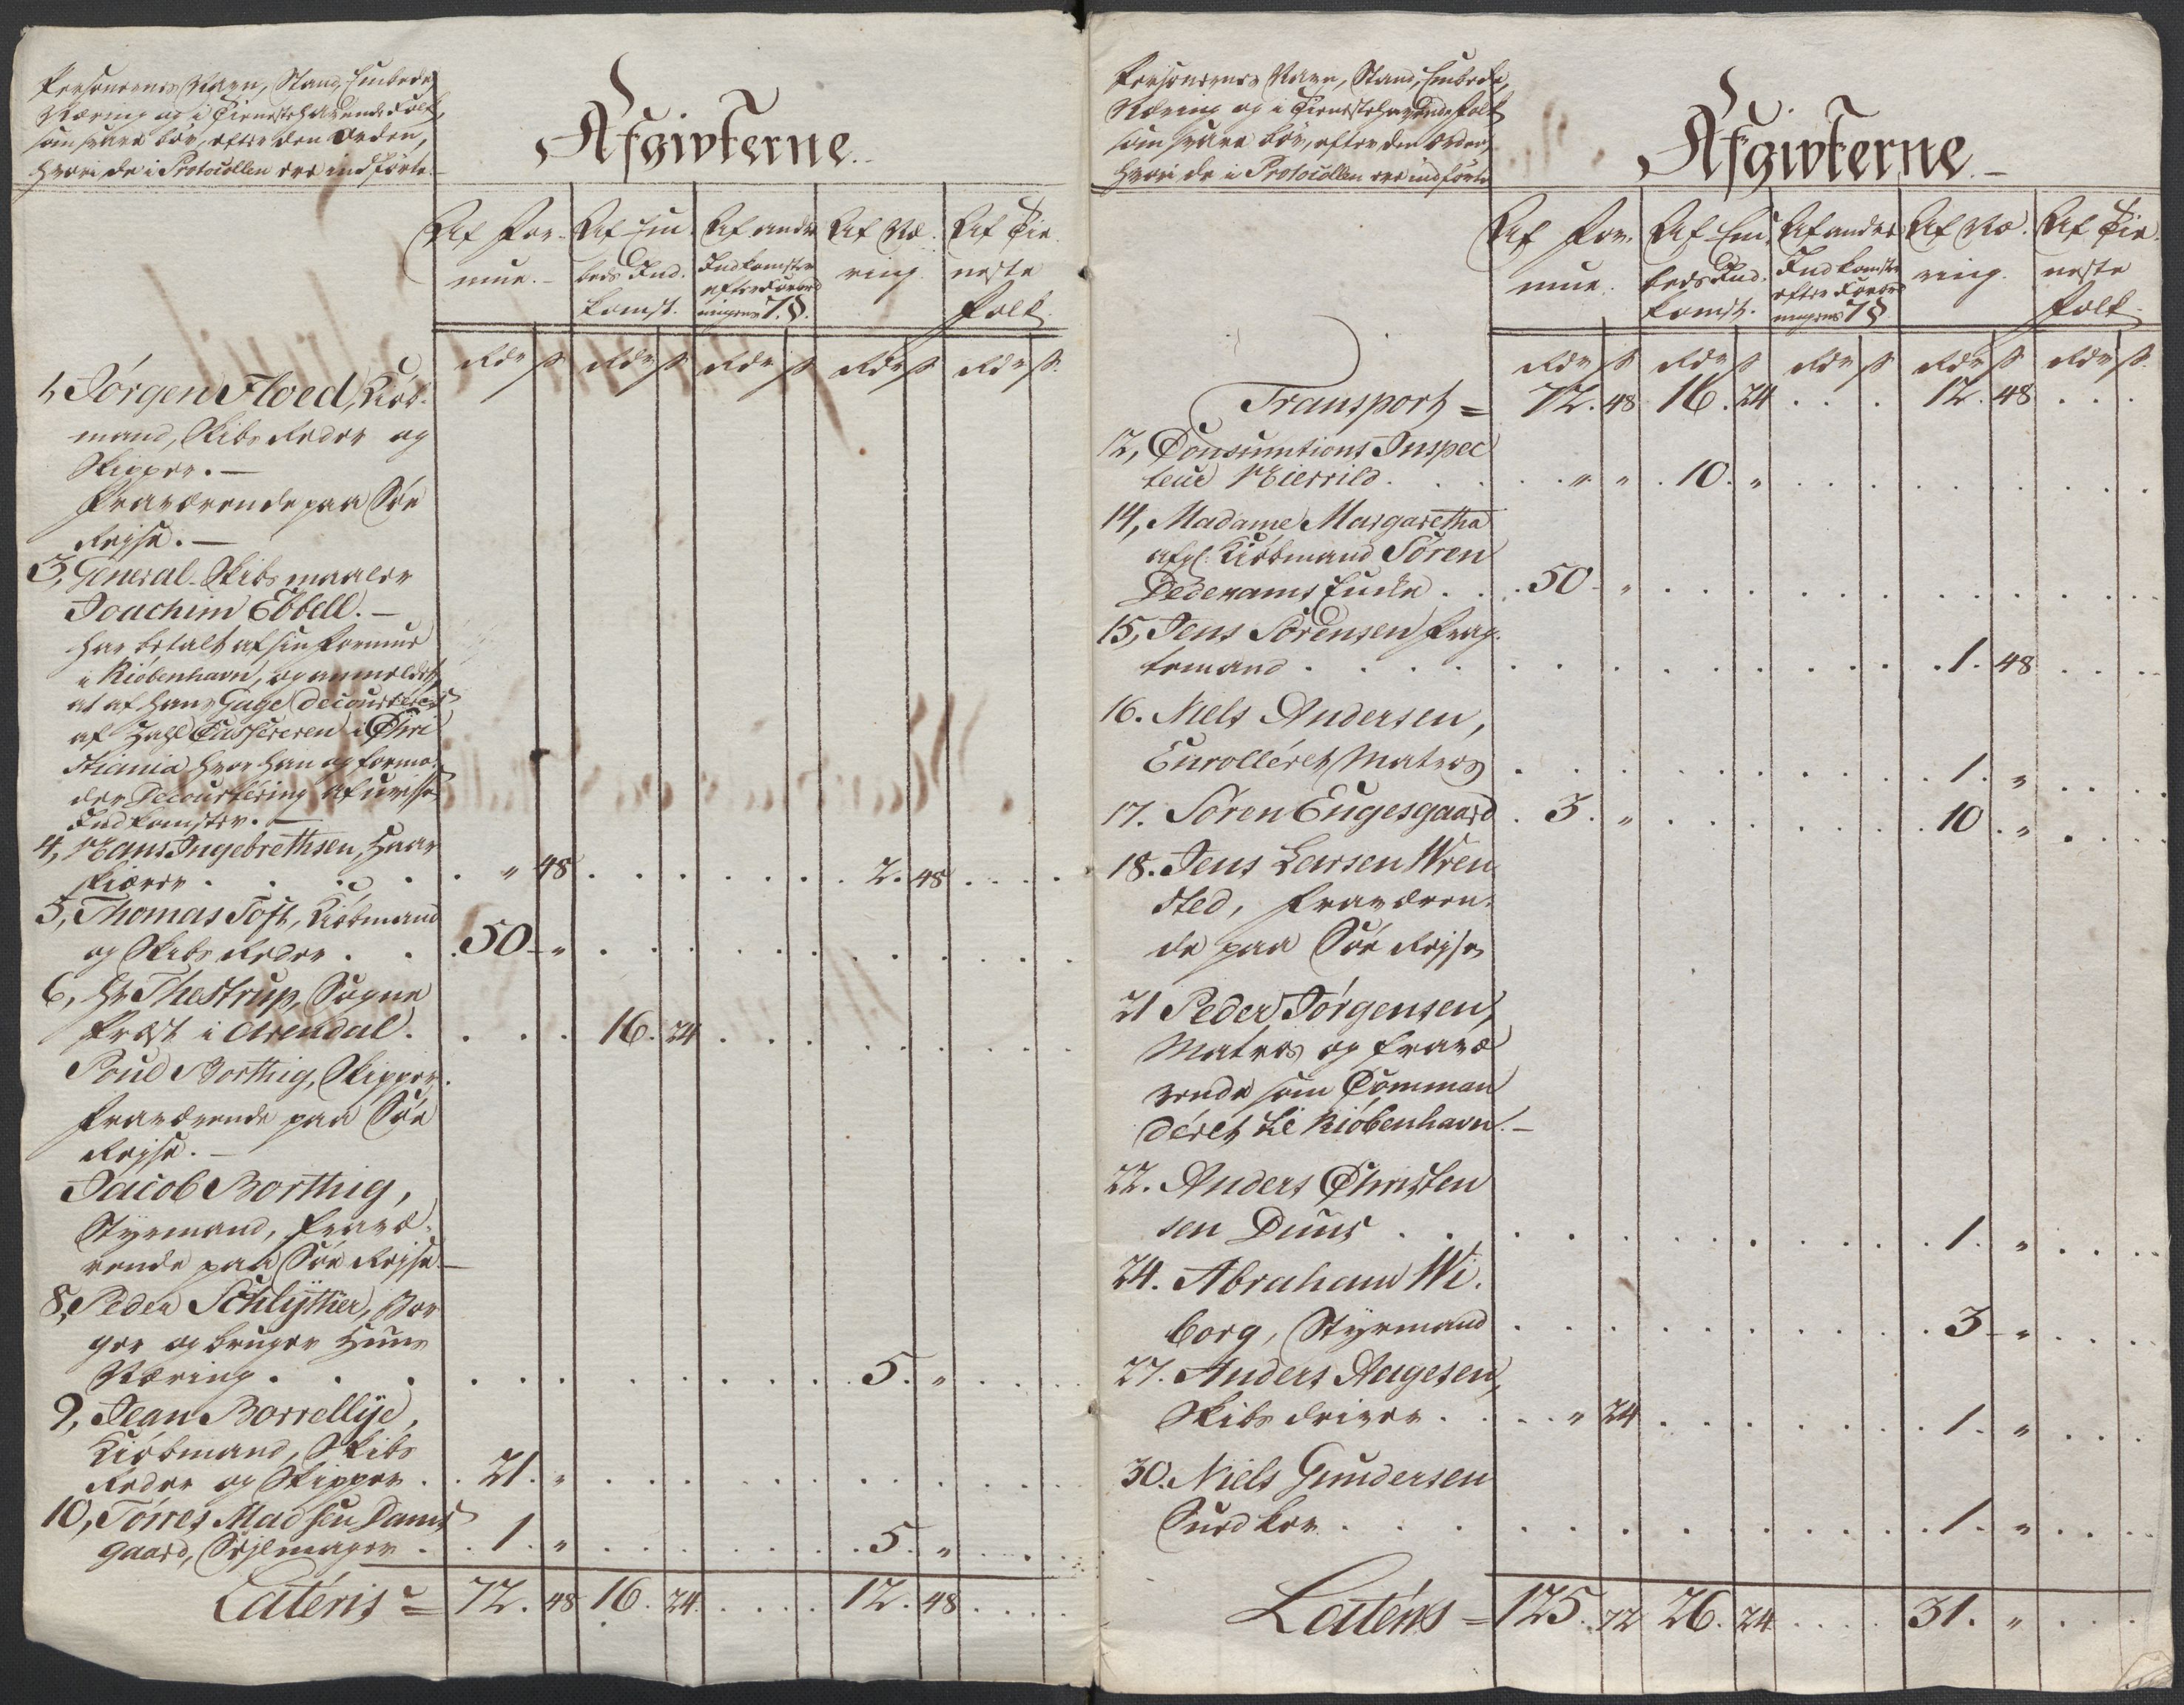 Personernes Navn, Stand, Embede,
Næring og i Tieneste havende Folk,
som svare bør, efter den Orden,
hvori de i Protocollen ere indførte.
Afgivterne.
Af For-
mue.
Af Em-
beds Ind-
komst.
Af andre
Indkomster
efter Forord-
ningens 7. §.
Af Næ-
ring.
Af Tie-
neste
Folk.
Rdr ß Rdr ß Rdr ß Rdr ß Rdr ß
1, Jørgen Floed, Kiøb-
mand, Skibs Reder og
Skipper. —
fraværende paa Søe
Rejse. —
3, General-Skibsmaaler
Joachim Ebbell. —
har betalt af sin Formue
i Kiøbenhavn, og anmeldet,
at af hans Gage decourteres
af Zahl Cassereren i Chri
stiania hvor han og formo-
der Decourtering af uvisse
Indkomster. —
4, Hans Ingebrethsen, Haar
skiærer . . . . " 48 . . . . 2. 48 . . .
5, Thomas Toft, Kiøbmand
og Skibs Reder . . . 50 - " . . . .
6, Hr Thestrup, Sogne
Præst i Arendal. . . . 16. 24 . . . .
Poul Borthig, Skipper.
fraværende paa Søe
Rejse. —
Jacob Borthig,
Styrmand, fravæ-
rende paa Søe Rejse. —
8, Peder Schlÿther, Bor
ger og bruger Huus
Næring . . . . . . 5. " . . .
9, Jean Borrellÿe,
Kiøbmand, Skibs
Reder og Skipper . . 21. " . . . .
10, Tørres Madsen Dams
gaard, Sejlmager . . 1. " . . . . 5. " . . .
Latéris = 72. 48 16. 24. . . . 12. 48 . . .
Personernes Navn, Stand, Embede,
Næring og i Tieneste havende Folk
som svare bør, efter den Orden,
hvori de i Protocollen ere indførte
Afgivterne. —
Af For-
mue.
Af Em-
beds Ind-
komst.
Af andre
Indkomster
efter Forord-
ningens 7 §
Af Næ-
ring.
Af Tie-
neste
Folk.
Rdr ß Rdr ß Rdr ß Rdr ß Rdr ß
Transport = 72. 48 16. 24 . . . 12. 48 . . .
12, Consumtions Inspec
teur Hierrild . . . " " . 10. " . . . .
14, Madame Margaretha
afgl: Kiøbmand Søren
Pedersens Enke . . . 50 - " . . . .
15, Jens Sørensen Frag-
temand . . . . . . 1. 48 . . .
16. Niels Andersen,
Enrolléret Matros . . . . . 1. " . . .
17. Søren Eugesgaard . 3. " . . . . 10. " . . .
18. Jens Larsen Wren
sted, fraværen-
de paa Søe Rejse
21 Peder Jørgensen,
Matros og fravæ
rende som Comman
déret til Kiøbenhavn. —
22. Anders Christen
sen Duus . . . . . . 1. " . . .
24. Abraham Wi-
borg, Styrmand . . . . . 3 - " . . .
27. Anders Aagesen,
Skibsdriver . . . " 24 . . . . 1. " . . .
30. Niels Gundersen
. . . . . . 1. " . . .
Latéris = 125. 72 26. 24 . . . 31. " . . .